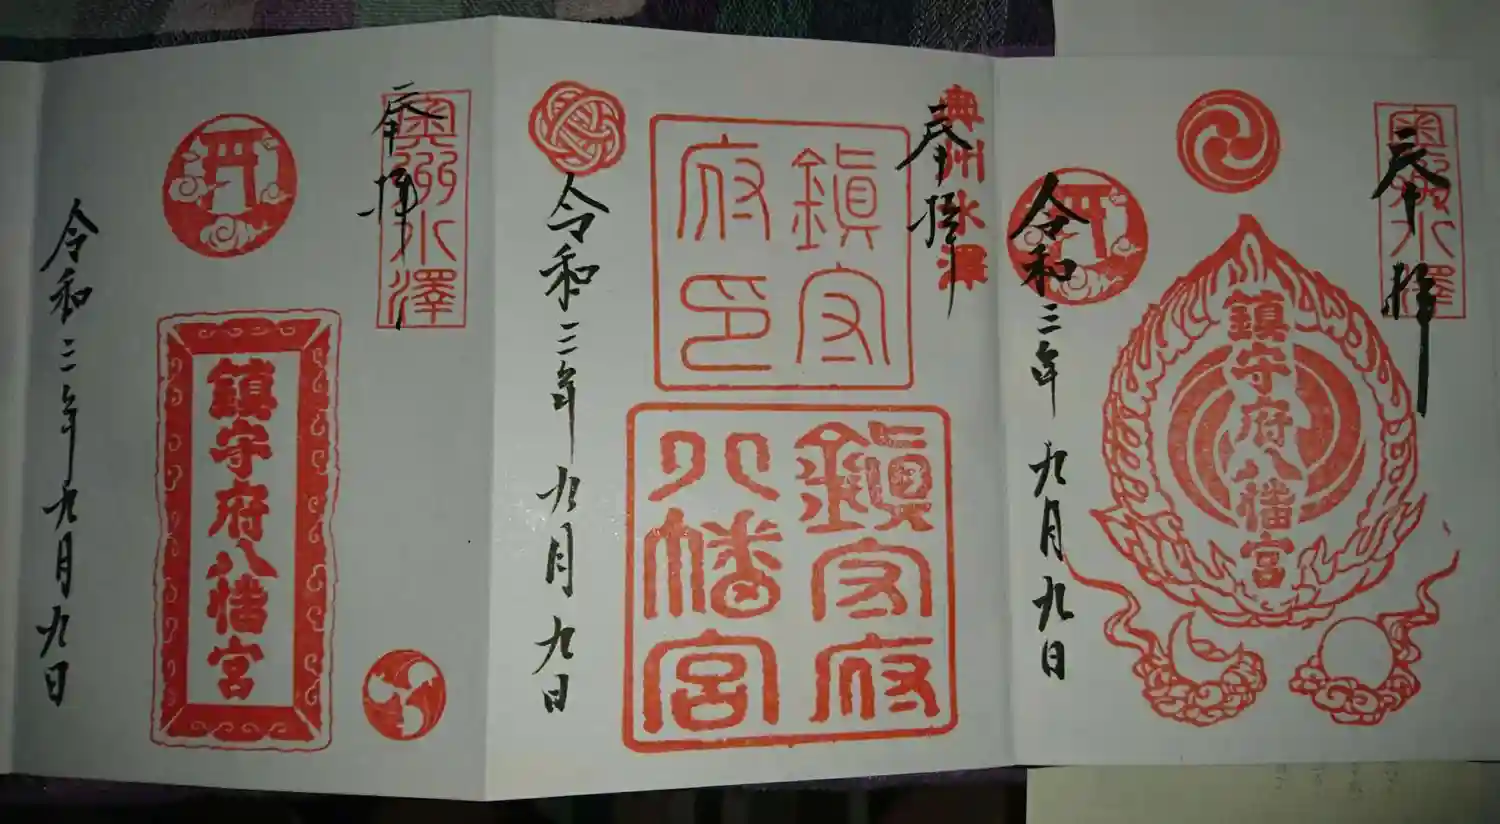 奥州水澤
奉拝
鎮守府八幡宮
令和三年九月九日
奥州水澤
奉拝
鎮守府印
鎮守府八幡宮
令和三年九月九日
奥州水澤
奉拝
鎮守府八幡宮
令和三年九月九日